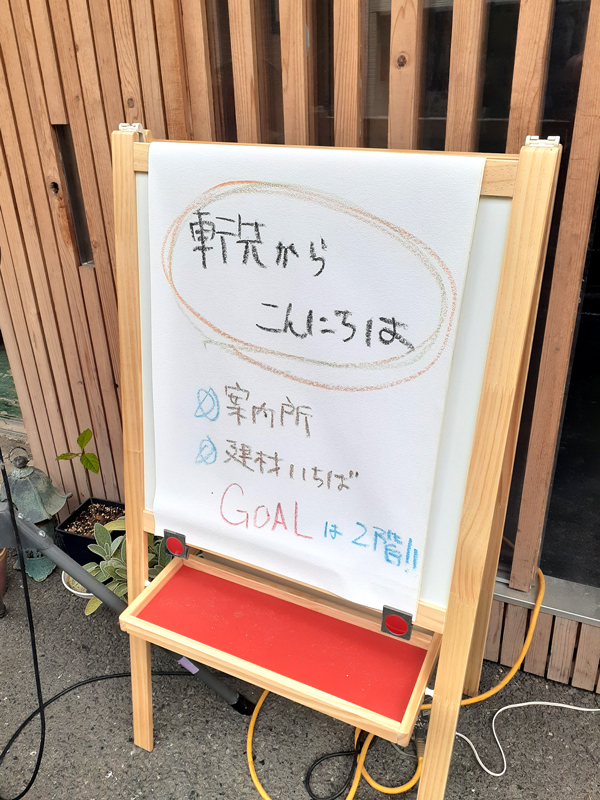 軒先から
こんにちは
案内所
建材いちば
GOALは2階!!